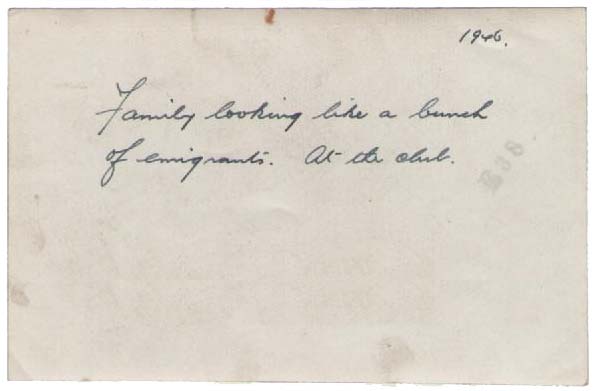 1946.
Family looking like a bunch
of emigrants. At the club.